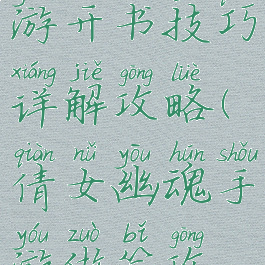 游开书技巧
xiáng jiě gōng lüè
详解攻略(
qiàn nǚ yōu hún shǒu
倩女幽魂手
yóu zuò bǐ gōng